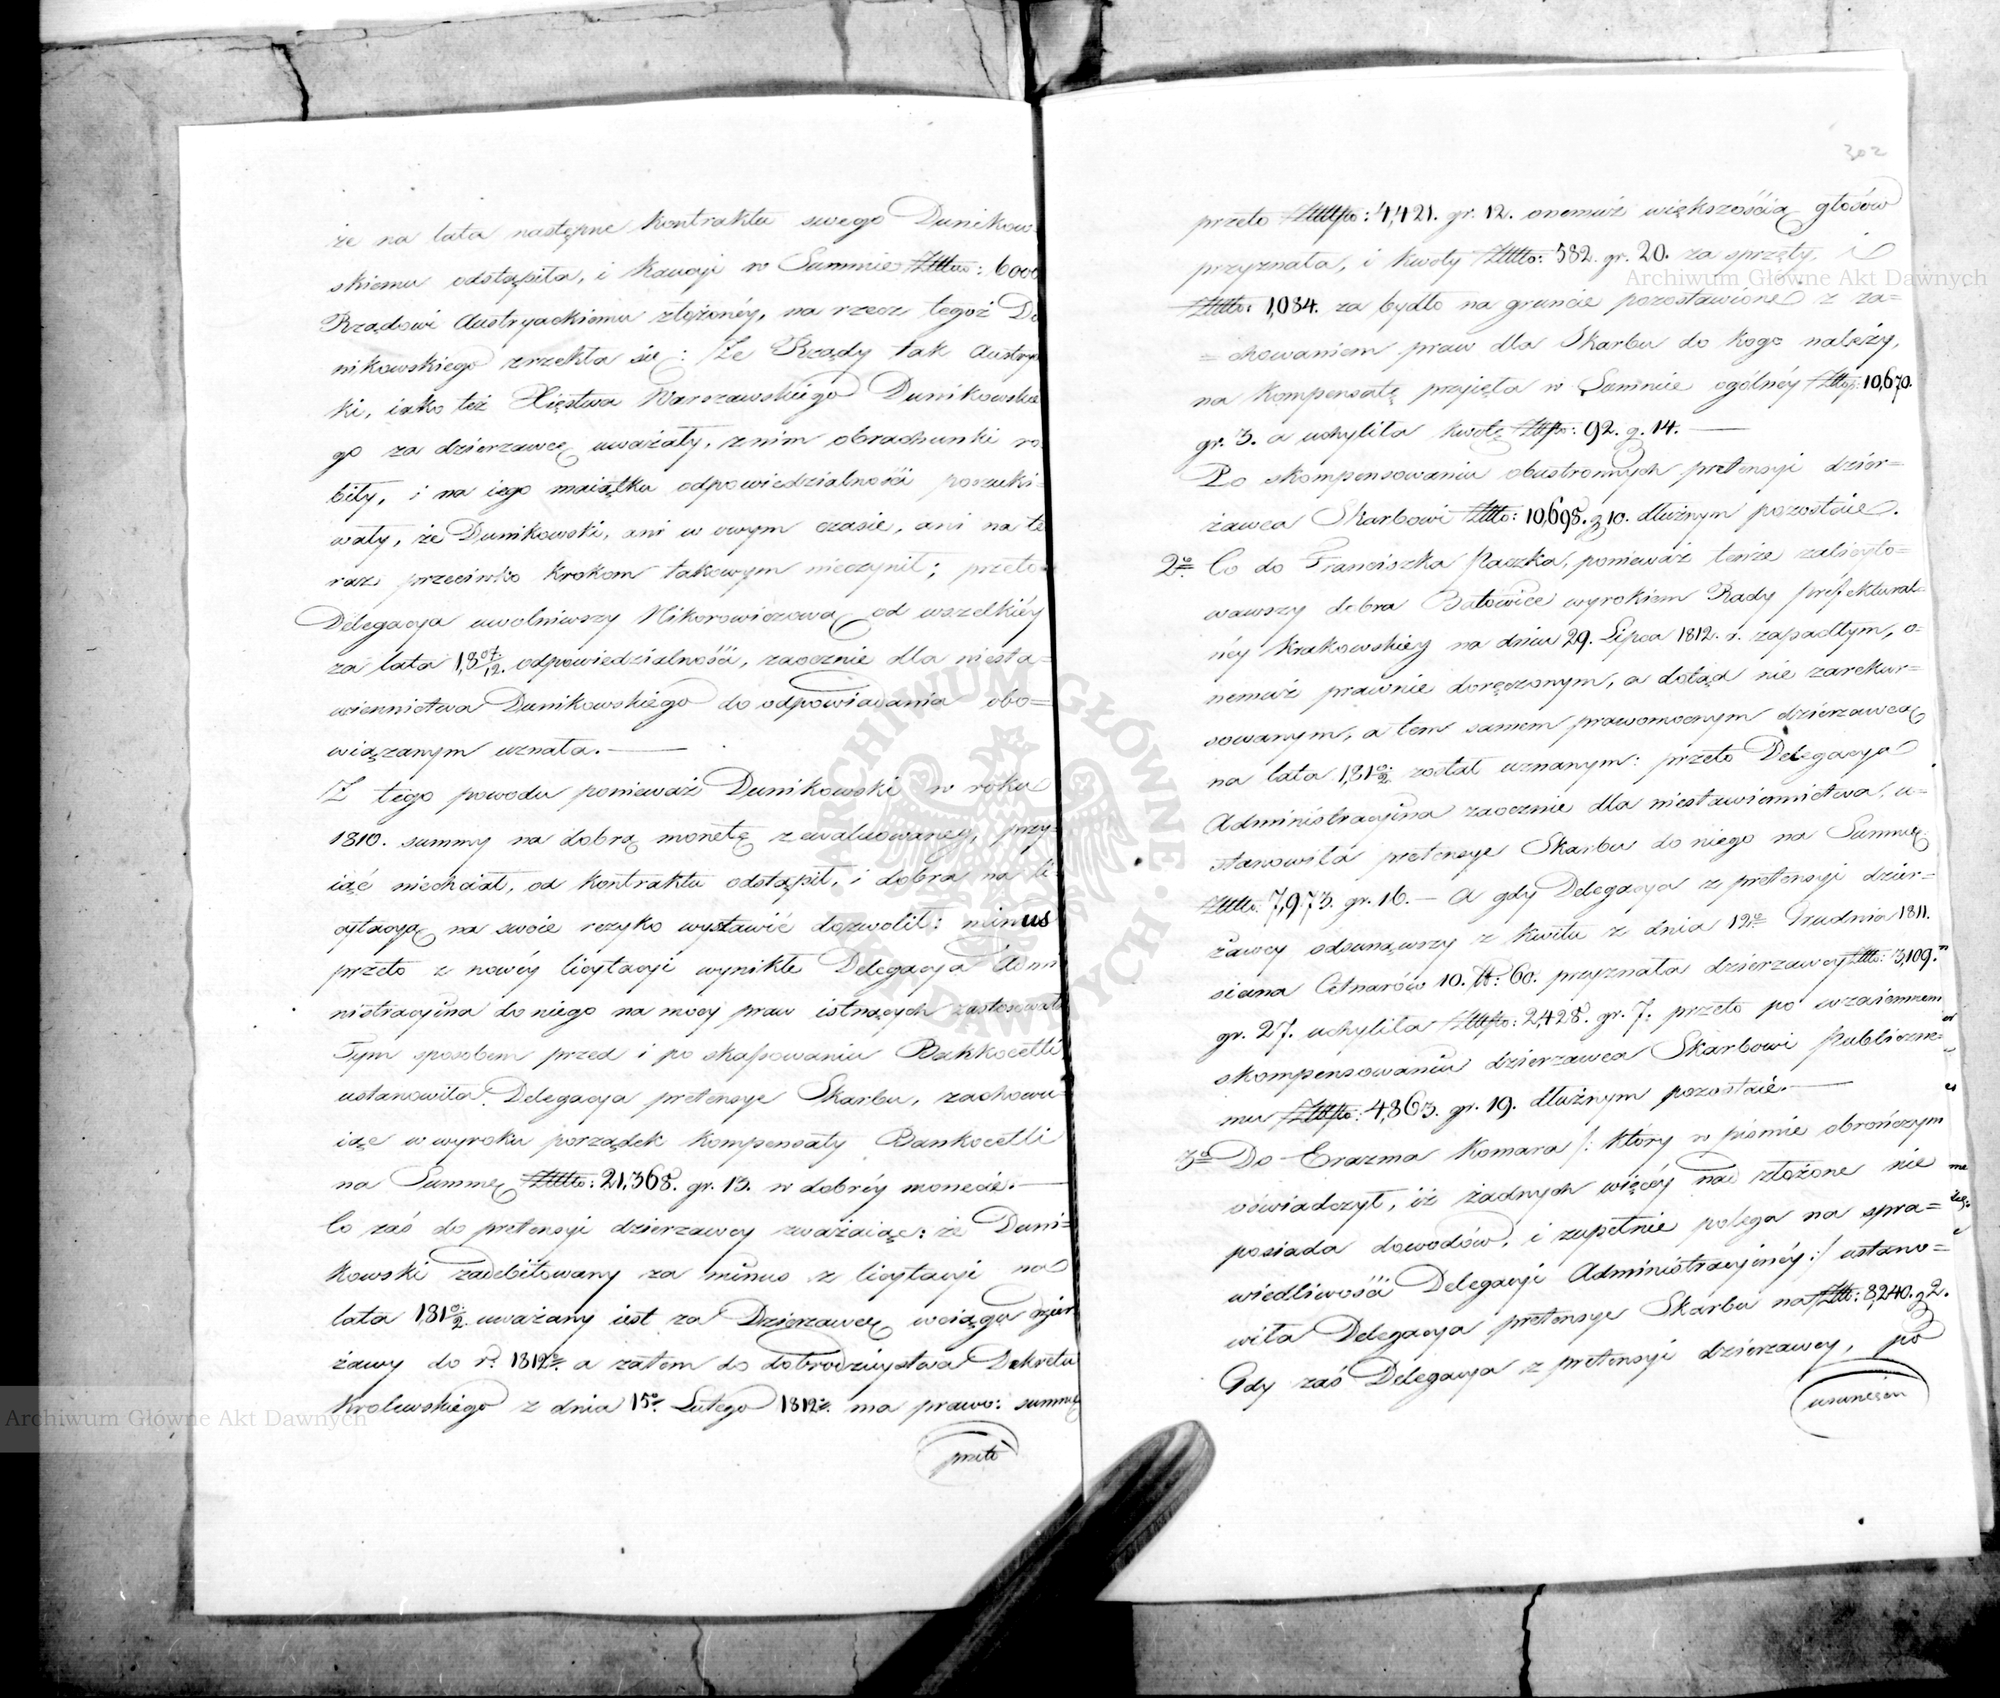 że na lata następne kontraktu swego Dunikow-
skiemu odstąpiła, i kaucyi w Summie Złtto: 6000
Rządowi Austryackiemu złożonéy, na rzecz tegoż Du
nikowskiego zrzekła się: Że Rządy tak Austrya
ki, iako też Xięstwa Warszawskiego Dunikowskie
go za dzierzawcę uważały, z nim obrachunki ro
biły, i na iego maiątku odpowiedzialności poszuki-
wały, że Dunikowski, ani w owym czasie, ani na te
raz przeciwko krokom takowym nieczynił; przeto
Delegacya uwolniwszy Nikorowiczową od wszelkiéy
za lata 18 07/12. odpowiedzialności, zaocznie dla niesta=
wiennictwa Dunikowskiego do odpowiadania obo=
wiązanym uznała. —
Z tego powodu ponieważ Dunikowski w roku
1810. summy na dobrą monetę zewaluowaney, przy-
iąć niechciał, od kontraktu odstąpił, i dobra na li-
cytacyą na swoie rezyko wystawić dozwolił: minus
przeto z nowéy licytacyi wynikłe Delegacya Admi
nistracyina do niego na mocy praw istnących zastosowała
Tym sposobem przed i po skassowaniu Bankocetli
ustanowiła Delegacya pretensye Skarbu, zachowu-
iąc w wyroku porządek kompensaty Bankocetli
na Summę Złtto: 21,368. gr. 13. w dobréy monecie. —
Co zaś do pretensyi dzierzawcy zważaiąc: że Duni=
kowski zadebitowany za minus z licytacyi na
lata 181 0/2. uważany iest za Dzierzawcę w ciągu dzier
żawy do r. 1812. a zatem do dobrodzieystwa Dekretu
Krolewskiego z dnia 15o Lutego 1812r. ma prawo: summę
przeto
302
przeto Złttpo: 4,421. gr. 12. onemuż większością głosów
przyznała, i kwoty Złtto: 582. gr. 20. za sprzęty, i
Złtto: 1,084. za bydło na gruncie pozostawione z za=
=chowaniem praw dla Skarbu do kogo należy,
na kompensatę przyięła w Summie ogólnéy Złttp: 10,670.
gr. 3. a uchyliła kwotę Złttpo: 92. g. 14. —
Po skompensowaniu obustronnych pretensyi dzier=
żawca Skarbowi Złtto: 10,698. g 10. dłużnym pozostaie.
2o Co do Franciszka Paczka, ponieważ tenże zalicyto=
wawszy dobra Batowice wyrokiem Rady préfektural=
néy Krakowskiey na dniu 29. Lipca 1812. r. zapadłym, o-
nemuż prawnie doręczonym, a dotąd nie zarekur=
sowanym, a tem samem prawomocnym dzierzawcą
na lata 181 0/2. został uznanym: przeto Delegacya
Administracyina zaocznie dla niestawiennictwa, u=
stanowiła pretensye Skarbu do niego na Summę
Złtto: 7,973. gr. 16. — A gdy Delegacya z pretensyi dzier=
żawcy odsunąwszy z kwitu z dnia 12o Grudnia 1811.
siana Cetnarów 10. tt: 60. przyznała dzierzawcy Złtto: 3,109.
gr. 27. uchyliła Złttpo: 2,428. gr. 7: przeto po wzaiemnem
skompensowaniu dzierzawca Skarbowi Publiczne-
mu Złttpo: 4,863. gr. 19. dłużnym pozostaie. —
3o Do Erazma Komara /: który w piśmie obrończym
oświadczył, iż żadnych więcéy nad złożone nie
posiada dowodów, i zupełnie polega na spra=
wiedliwości Delegacyi Administracyinéy :/ ustano=
wiła Delegacya pretensye Skarbu na Złtto: 8,240. g 2.
Gdy zaś Delegacya z pretensyi dzierzawcy, po
usunięciu
Archiwum Główne Akt Dawnych
Archiwum Główne Akt Dawnych
ARCHIWUM GŁÓWNE AKT DAWNYCH